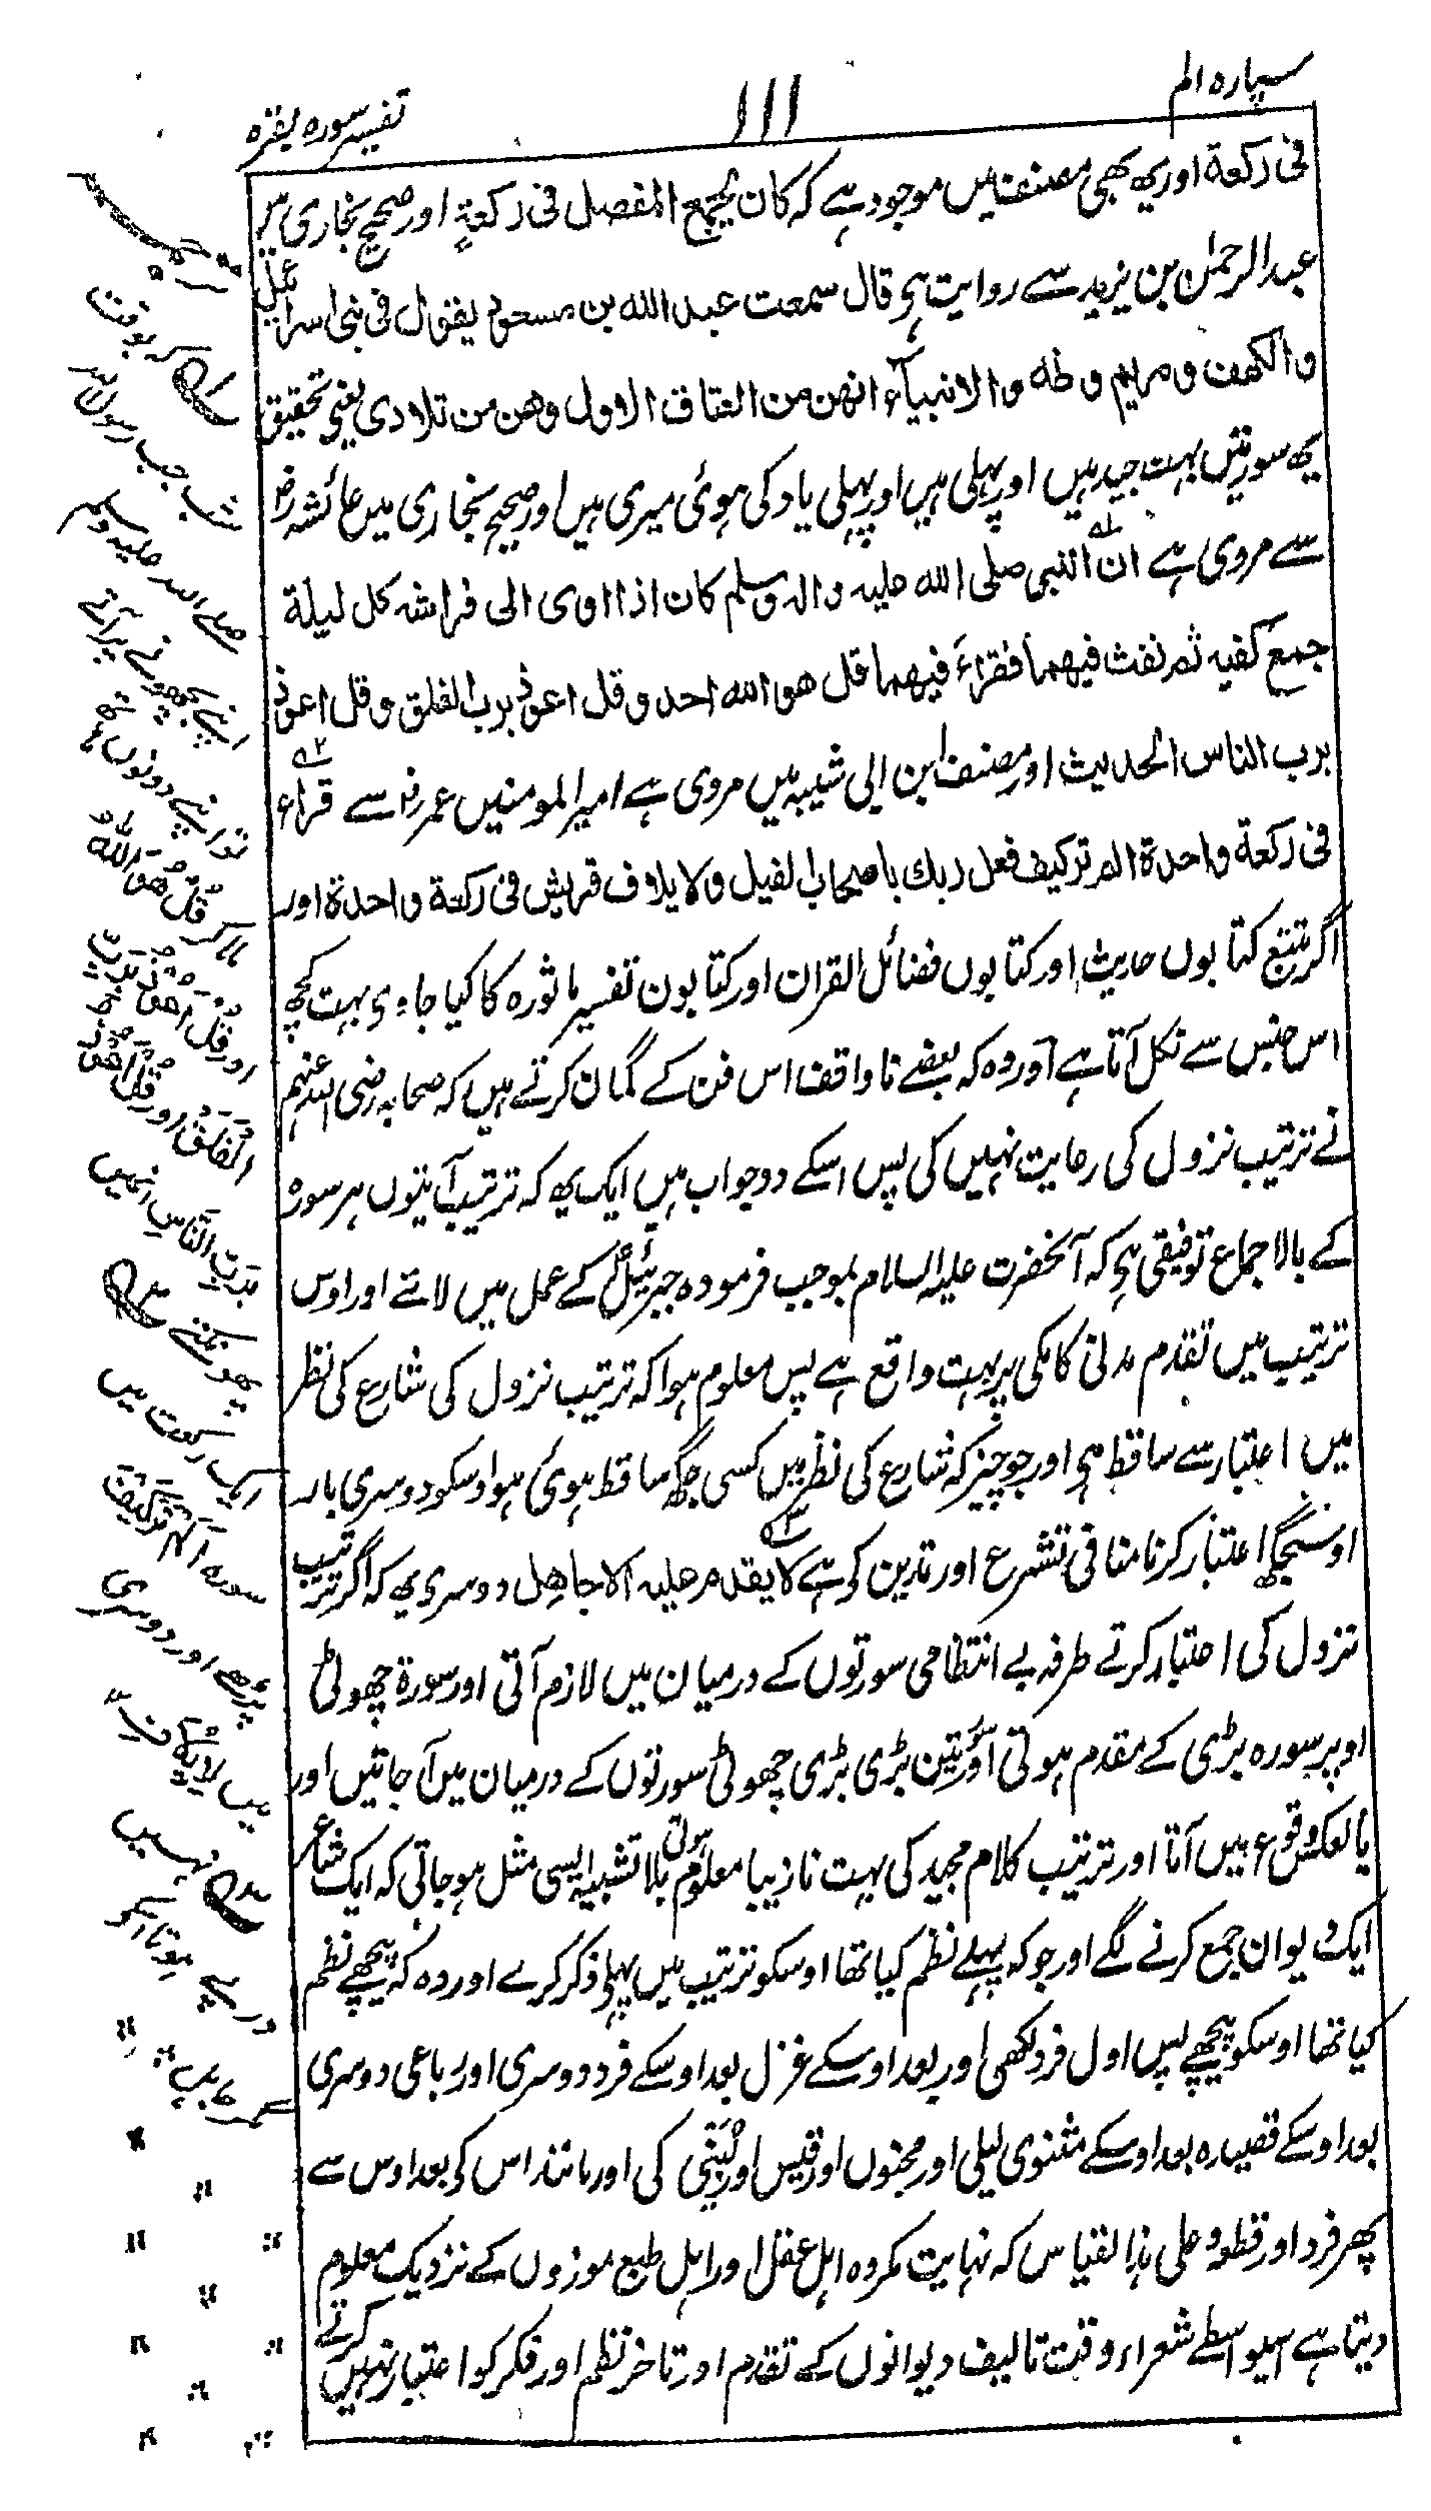 سیپارہ الم
۱۱۱
تفسیر سورہ بقرہ
فی رکعة اور یہ بھی مصنف میں موجود ہے کہ کان یجمع المفصل فی رکعةٍ اور صحیح بخاری میں
عبدالرحمٰن بن یزید سے روایت ہی قال سمعت عبد الله بن مسعود یقول فی بنی اسرائیل
والکهف ومریم وطه والانبیآء انهن من العتاق الاول وهن من تلادی یعنی تحقیق
یہ سورتیں بہت جید ہیں اور پہلی ہیں اور پہلی یاد کی ہوئی میری ہیں اور صحیح بخاری میں عائشہ رض
سے مروی ہے ان النبی صلی الله علیه واله وسلم کان اذا اوی الی فراشه کل لیلة
جمع کفیه ثم نفث فیهما فقراء فیهما قل هو الله احد وقل اعوذ برب الفلق وقل اعوذ
برب الناس الحدیث اور مصنف ابن ابی شیبہ میں مروی ہے امیر المومنین عمر رض سے قراء
فی رکعة واحدة الم ترکیف فعل ربك باصحاب الفیل ولایلاف قریش فی رکعة واحدة اور
اگر تتبع کتابوں حدیث اور کتابوں فضائل القرآن اور کتابوں تفسیر ماثورہ کا کیا جاوی بہت کچھ
اس جنس سے نکل آتا ہے اور وہ کہ بعضے ناواقف اس فن کے گمان کرتے ہیں کہ صحابہ رضی اللہ عنہم
نے ترتیب نزول کی رعایت نہیں کی پس اسکے دو جواب ہیں ایک یہ کہ ترتیب آیتوں ہر سورہ
کے بالاجماع توفیقی ہی کہ آنحضرت علیہ السلام بموجب فرمودہ جبرئیل کے عمل میں لاتے اور اوس
ترتیب میں تقدم مدنی کا مکی پر بہت واقع ہے پس معلوم ہوا کہ ترتیب نزول کی شارع کی نظر
میں اعتبار سے ساقط ہی اور جو چیز کہ شارع کی نظر میں کسی جگہ ساقط ہوئی ہو اوسکو دوسری بار
اوسجگہ اعتبار کرنا منافی تشرع اور تدین کی ہے لا یقدم علیه الا جاهل دوسری یہ کہ اگر ترتیب
نزول کی اختیار کرتے طرفہ بے انتظامی سورتوں کے درمیان میں لازم آتی اور سورة چھوٹی
اوپر سورہ بڑی کے مقدم ہوتی اور سورتین بڑی بڑی چھوٹی سورتوں کے درمیان میں آجاتیں اور
بالعکس وقوع میں آتا اور ترتیب کلام مجید کی بہت نازیبا معلوم ہوتی بلا تشبیہ ایسی مثل ہوجاتی کہ ایک شاعر
ایک دیوان جمع کرنے لگے اور جو کہ پہلے نظم کیا تھا اوسکو ترتیب میں پہلے ذکر کرے اور وہ کہ پیچھے نظم
کیا تھا اوسکو پیچھے پس اول فرد لکھی اور بعد اوسکے غزل بعد اوسکے فرد دوسری اور رباعی دوسری
بعد اوسکے قصیدہ بعد اوسکے مثنوی لیلی اور مجنوں اور قیس اور لبنی کی اور مانند اس کی بعد اوس سے
پھر فرد اور قطعہ وعلی ہذا القیاس کہ نہایت مکروہ اہل عقل اور اہل طبع موزوں کے نزدیک معلوم
دیتا ہے اسیواسطے شعراء وقت تالیف دیوانوں کے تقدم اور تاخر نظم اور فکر کو اعتبار نہیں کرتے
ترجمہ
کہ بوقت
شب جب رسول اللہ
صلے اللہ علیہ وسلم
اپنے بچھونے پر آتے
تو اپنے دونوں ہاتھ
ملا کر قُلْ هُوَ اللّٰهُ
اور قُلْ اَعُوْذُ بِرَبِّ
الْفَلَقِ اور قُلْ اَعُوْذُ
بِرَبِّ النَّاسِ انمیں
پھونکتے
ایک رکعت میں
سورہ اَلَمْ تَرَ كَيْفَ
پڑھے اور دوسری
میں لِاِيْلٰفِ
نہیں
درپے ہوتا اسکو